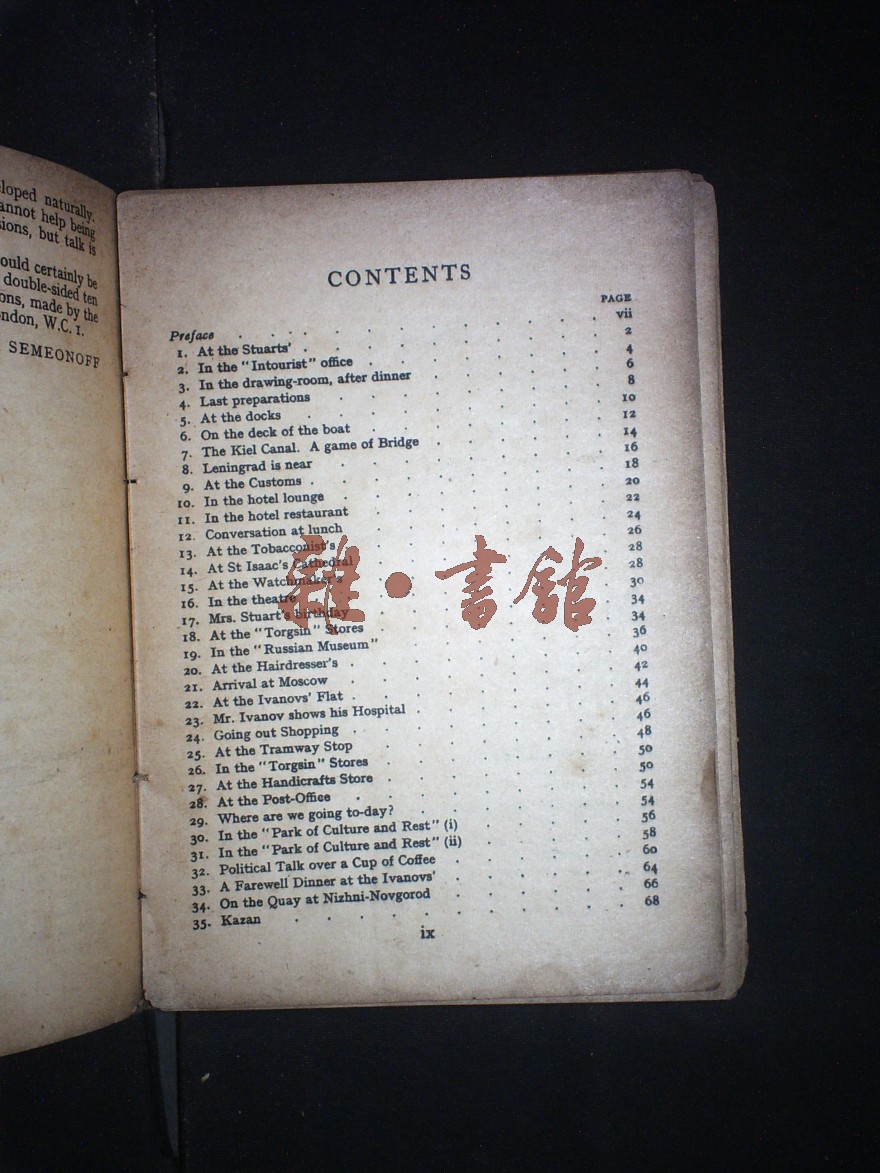 eloped naturally.
annot help being
sions, but talk is
ould certainly be
double-sided ten
ons, made by the
ndon, W.C. 1.
SEMEONOFF
CONTENTS
PAGE
Preface . . . . . . . . . . vii
1. At the Stuarts' . . . . . . . . . 2
2. In the "Intourist" office . . . . . . . 4
3. In the drawing-room, after dinner . . . . . . 6
4. Last preparations . . . . . . . . 8
5. At the docks . . . . . . . . . 10
6. On the deck of the boat . . . . . . . 12
7. The Kiel Canal. A game of Bridge . . . . . 14
8. Leningrad is near . . . . . . . . 16
9. At the Customs . . . . . . . . . 18
10. In the hotel lounge . . . . . . . . 20
11. In the hotel restaurant . . . . . . . 22
12. Conversation at lunch . . . . . . . 24
13. At the Tobacconist's . . . . . . . 26
14. At St Isaac's Cathedral . . . . . . . 28
15. At the Watchmaker's . . . . . . . 28
16. In the theatre . . . . . . . . 30
17. Mrs. Stuart's birthday . . . . . . . 34
18. At the "Torgsin" Stores . . . . . . . 34
19. In the "Russian Museum" . . . . . . 36
20. At the Hairdresser's . . . . . . . . 40
21. Arrival at Moscow . . . . . . . . 42
22. At the Ivanovs' Flat . . . . . . . . 44
23. Mr. Ivanov shows his Hospital . . . . . . 46
24. Going out Shopping . . . . . . . . 46
25. At the Tramway Stop . . . . . . . 48
26. In the "Torgsin" Stores . . . . . . . 50
27. At the Handicrafts Store . . . . . . . 50
28. At the Post-Office . . . . . . . . 54
29. Where are we going to-day? . . . . . . 54
30. In the "Park of Culture and Rest" (i) . . . . 56
31. In the "Park of Culture and Rest" (ii) . . . . 58
32. Political Talk over a Cup of Coffee . . . . . 60
33. A Farewell Dinner at the Ivanovs' . . . . . 64
34. On the Quay at Nizhni-Novgorod . . . . . 66
35. Kazan . . . . . . . . . . 68
ix
雜·書館